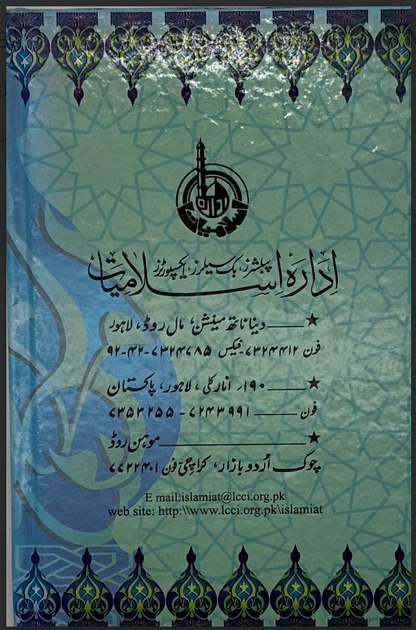 ادارہ
اسلامیات
ادارۂ اسلامیات پبلشرز، بک سیلرز، ایکسپورٹرز
★ــــ دینا ناتھ مینشن، مال روڈ، لاہور
فون ۷۳۲۴۴۱۲- فیکس ۷۳۲۴۷۸۵-۴۲-۹۲
★ــــ ۱۹۰، انارکلی، لاہور، پاکستان
فون ــــ ۷۲۴۳۹۹۱ - ۷۳۵۳۲۵۵
★ــــ موہن روڈ
چوک اُردو بازار، کراچی فون ۷۷۲۲۴۰۱
E mail:islamiat@lcci.org.pk
web site: http:\\www.lcci.org.pk\islamiat